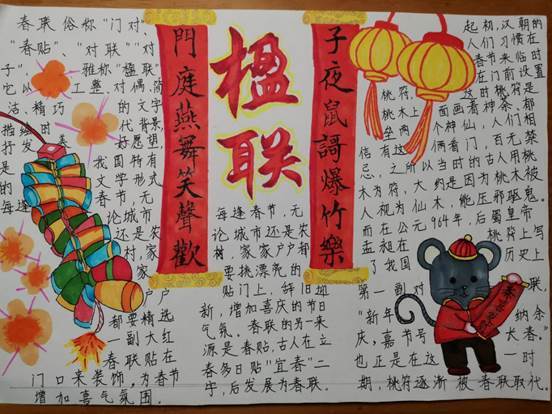 楹联
子夜鼠謌爆竹樂
門庭燕舞笑聲歡
春联俗称"门对、
"春贴"、"对联""对
子",雅称"楹联"
它以工整、对偶、简
洁、精巧的文字
描绘时代背景,
抒发美好愿望,
是我国特有
的文学形式
每逢春节,无
论城市
还是农
村,家
家户户
都要精选
一副大红
春联贴在
门口来装饰,为春节
增加喜气氛围。
每逢春节,无
论城市还是农
村,家家户户都
要挑漂亮的
贴门上,辞旧迎
新,增加喜庆的节日
气氛。春联的另一来
源是春贴,古人在立
春多日贴"宜春"二
字,后发展为春联。
起初,汉朝的
人们习惯在
春节来临时
在门前设置
桃符,这时桃符是
桃木上面画着神荼、郁
垒两个神仙,人们相
信有这俩看门,百无禁
忌,之所以当时的古人用桃
木为符,大约是因为桃木被
人视为仙木,能压邪驱鬼。
而在公元964年,后蜀皇帝
孟昶在桃符上写
了我国历史上
第一副对联,
"新年纳余
庆,嘉节号长春。"
也正是在这一时
期,桃符逐渐被春联取代。